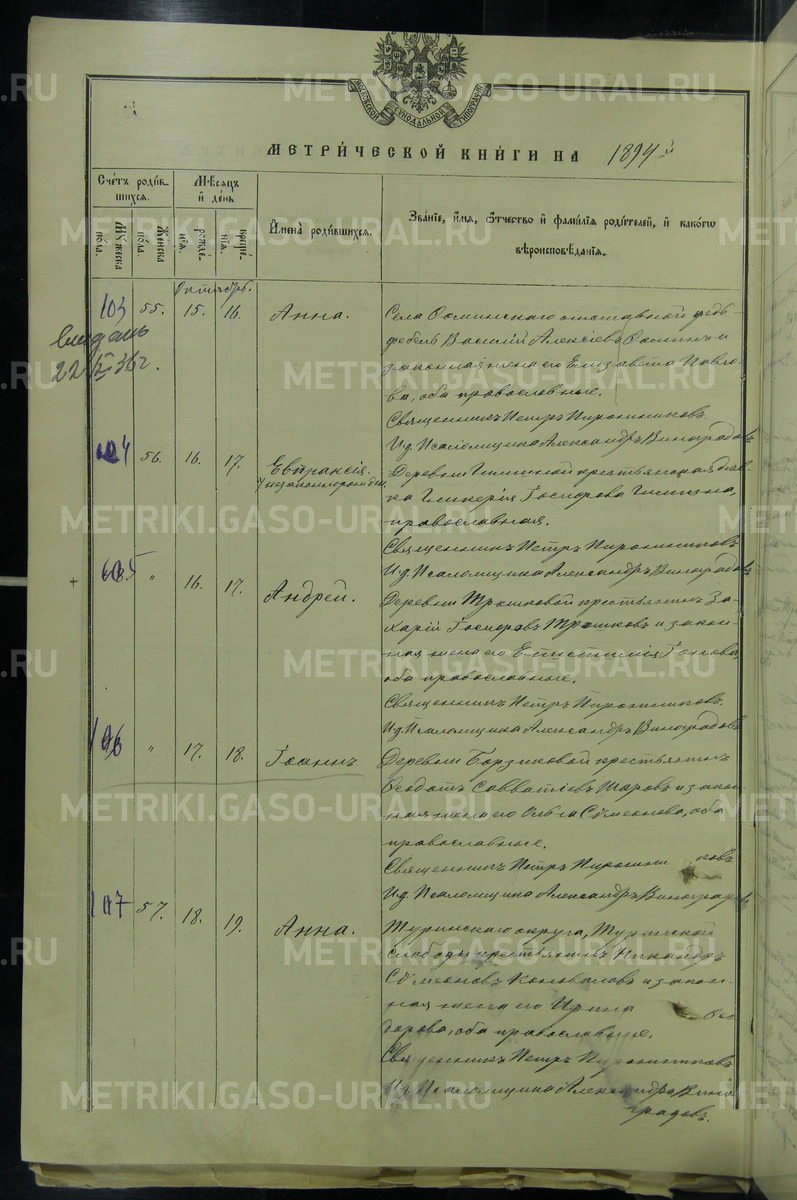 МОСКОВСКОЙ СУНОДАЛЬНОЙ ТИПОГРАФІИ
МЕТРИ́ЧЕСКОЙ КНИ́ГИ НА 1894 й
Сче́тъ роди́вшихся.
Мѣ́сяцъ и҆ де́нь
И҆мена̀ роди́вшихся.
Зва́нїе, и҆́мя, ѻ҆́тчество и҆ фами́лїя роди́телей, и҆ како́гѡ вѣроисповѣ́данїя.
Му́жеска по́ла.
Же́нска по́ла.
рожде́нїя.
креще́нїя.
Октябрь.
103 55. 15. 16. Анна.
22 36г.
Села Ѳоминскаго отставной фельд-
фебель Василій Алексіевъ Ѳоминъ и
законная жена его Елизавета Павло-
ва, оба православные.
Священникъ Петръ Пирожниковъ.
И.д. Псаломщика Александръ Виноградовъ
104 56. 16. 17. Евпраксія.
/незаконнорожден.
Деревни крестьянская дѣв-
ка Гликерія
православная.
Священникъ Петръ Пирожниковъ
И.д. Псаломщика Александръ Виноградовъ
105 " 16. 17. Андрей.
Деревни Трошковой крестьянинъ За-
харій Трошковъ и закон-
ная жена его Епистимія
оба православные.
Священникъ Петръ Пирожниковъ.
И.д. Псаломщика Александръ Виноградовъ
106 " 17. 18. Іоаннъ
Деревни Борзиковой крестьянинъ
Ѳеодотъ Савватіевъ Шаровъ и закон-
ная жена его Ольга Сѵмеонова, оба
православные.
Священникъ Петръ Пирожниковъ
И.д. Псаломщика Александръ Виноградовъ
107 57. 18. 19. Анна.
Туринскаго округа, Туринской
слободы крестьянинъ Никандръ
Сѵмеоновъ Коноваловъ и закон-
ная жена его Ирина Ѳео
дорова, оба православные.
Священникъ Петръ Пирожниковъ
И.д. Псаломщика Александръ Вино
градовъ.
METRIKI.GASO-URAL.RU